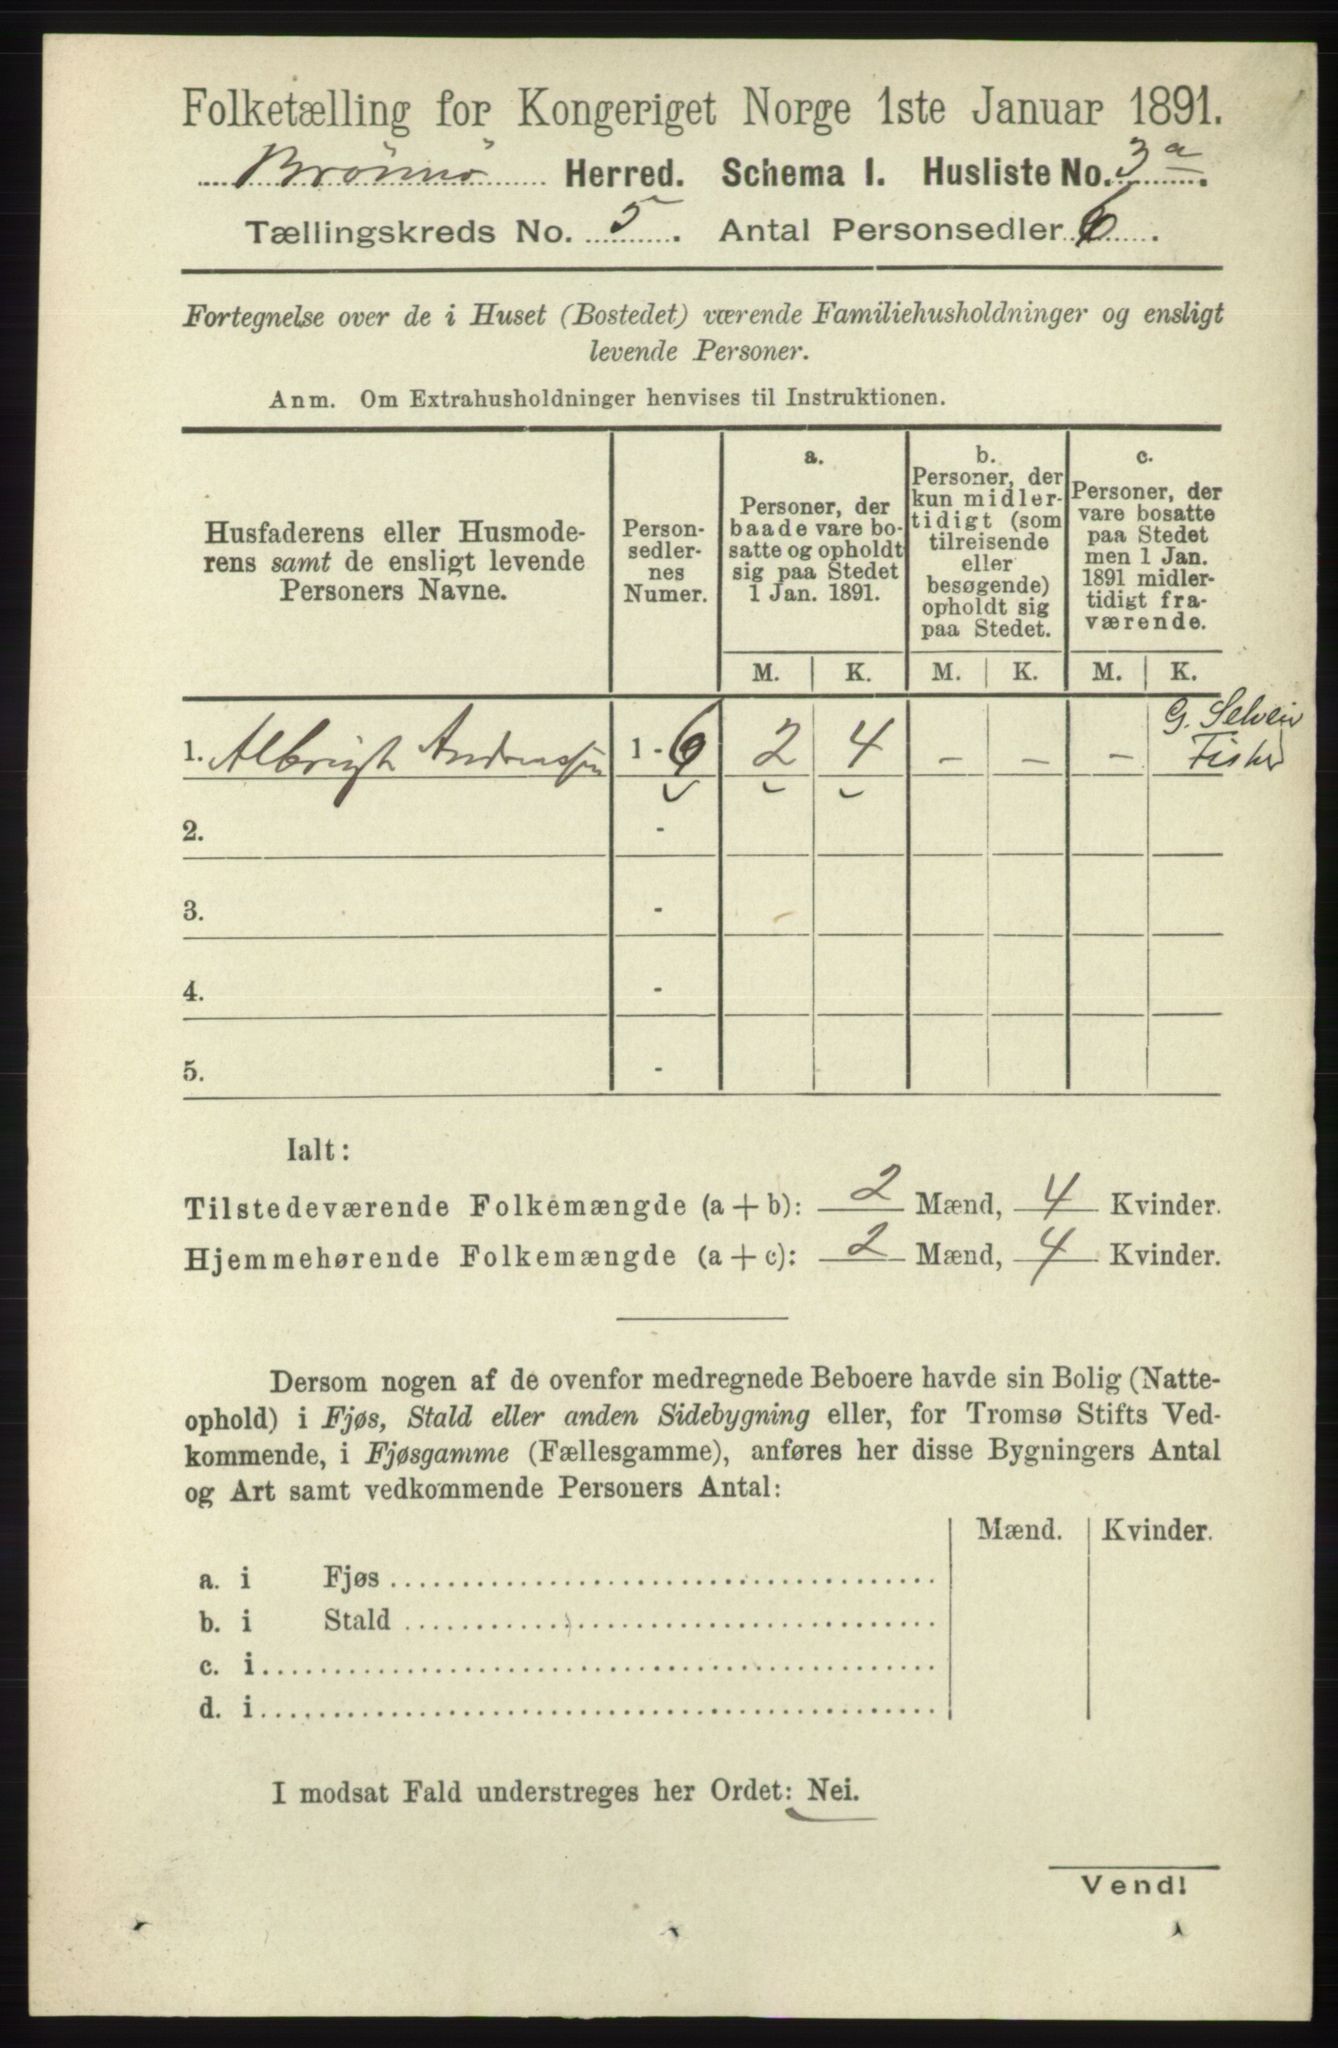 Folketælling for Kongeriget Norge 1ste Januar 1891.
Brönnö Herred. Schema I. Husliste No. 3a.
Tællingskreds No. 5. Antal Personsedler 6.
Fortegnelse over de i Huset (Bostedet) værende Familiehusholdninger og ensligt
levende Personer.
Anm. Om Extrahusholdninger henvises til Instruktionen.
Husfaderens eller Husmode-
rens samt de ensligt levende
Personers Navne.
Person-
sedler-
nes
Numer.
a.
Personer, der
baade vare bo-
satte og opholdt
sig paa Stedet
1 Jan. 1891.
b.
Personer, der
kun midler-
tidigt (som
tilreisende
eller
besøgende)
opholdt sig
paa Stedet.
c.
Personer, der
vare bosatte
paa Stedet
men 1 Jan.
1891 midler-
tidigt fra-
værende.
M. K. M. K. M. K.
1. Albrigt Andreassen 1 - 6 2 4 - - - G. Selveier
Fisker
2. -
3. -
4. -
5. -
Ialt:
Tilstedeværende Folkemængde (a + b): 2 Mænd, 4 Kvinder.
Hjemmehørende Folkemængde (a + c): 2 Mænd, 4 Kvinder.
Dersom nogen af de ovenfor medregnede Beboere havde sin Bolig (Natte-
ophold) i Fjøs, Stald eller anden Sidebygning eller, for Tromsø Stifts Ved-
kommende, i Fjøsgamme (Fællesgamme), anføres her disse Bygningers Antal
og Art samt vedkommende Personers Antal:
Mænd. Kvinder.
a. i Fjøs
b. i Stald
c. i
d. i
I modsat Fald understreges her Ordet: Nei.
Vend!